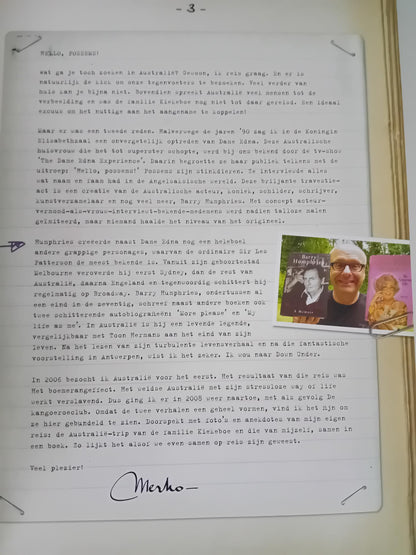 - 3 -
HELLO, POSSEMS!
Wat ga je toch zoeken in Australië? Gewoon, ik reis graag. En er is
natuurlijk de kick om onze tegenvoeters te bezoeken. Veel verder van
huis kan je bijna niet. Bovendien spreekt Australië veel mensen tot de
verbeelding en was de familie Kiekeboe nog niet tot daar gereisd. Een ideaal
excuus om het nuttige aan het aangename te koppelen!
Maar er was een tweede reden. Halverwege de jaren '90 zag ik in de Koningin
Elisabethzaal een onvergetelijk optreden van Dame Edna. Deze Australische
huisvrouw die het tot superster schopte, werd bij ons bekend door de tv-show
'The Dame Edna Experience'. Daarin begroette ze haar publiek telkens met de
uitroep: 'Hello, possems!' Possems zijn stinkdieren. Ze interviewde alles
wat naam en faam had in de Angelsaksische wereld. Deze briljante travestie-
act is een creatie van de Australische acteur, komiek, schilder, schrijver,
kunstverzamelaar en nog veel meer, Barry Humphries. Het concept acteur-
vermomd-als-vrouw-interviewt-bekende-mensen werd nadien talloze malen
geïmiteerd, maar niemand haalde het niveau van het origineel.
Humphries creëerde naast Dame Edna nog een heleboel
andere grappige personages, waarvan de ordinaire Sir Les
Patterson de meest bekende is. Vanuit zijn geboortestad
Melbourne veroverde hij eerst Sydney, dan de rest van
Australië, daarna Engeland en tegenwoordig schittert hij
regelmatig op Broadway. Barry Humphries, ondertussen al
een eind in de zeventig, schreef naast andere boeken ook
twee schitterende autobiografieën 'More please' en 'My
life as me'. In Australië is hij een levende legende,
vergelijkbaar met Toon Hermans aan het eind van zijn
leven. Na het lezen van zijn turbulente levensverhaal en na die fantastische
voorstelling in Antwerpen, wist ik het zeker. Ik wou naar Down Under.
In 2006 bezocht ik Australië voor het eerst. Het resultaat van die reis was
Het boemerangeffect. Het weidse Australië met zijn stressloze way of life
werkt verslavend. Dus ging ik er in 2008 weer naartoe, met als gevolg De
kangoeroeclub. Omdat de twee verhalen een geheel vormen, vind ik het fijn om
ze hier gebundeld te zien. Doorspekt met foto's en anekdotes van mijn eigen
reis: de Australië-trip van de familie Kiekeboe en die van mijzelf, samen in
een boek. Zo lijkt het alsof we even samen op reis zijn geweest.
Veel plezier!
Merho
Barry
Humphries